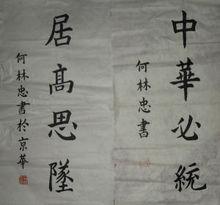 中華必統
何林忠書
居高思墜
何林忠書於京華